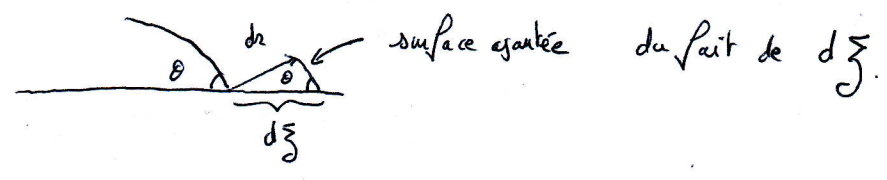 dr
surface ajoutée du fait de dξ.
θ θ
dξ